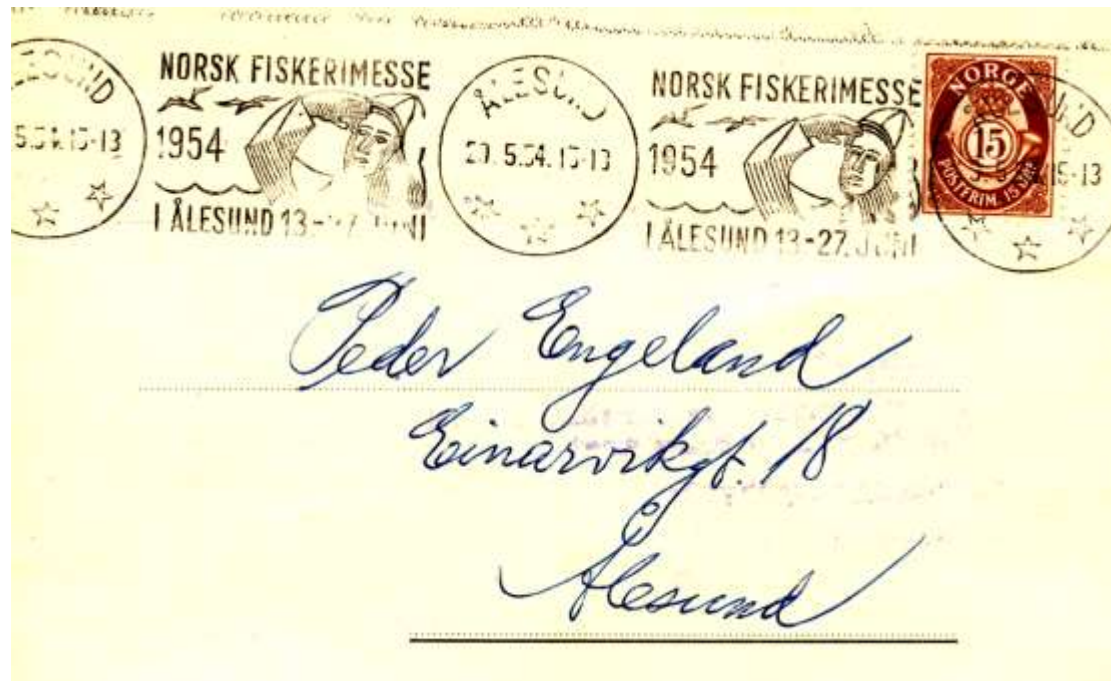 NORSK FISKERIMESSE
1954
I ÅLESUND 13-27. JUNI
ÅLESUND
5.54.15-13
NORSK FISKERIMESSE
1954
I ÅLESUND 13-27. JUNI
NORGE
15
POSTFRIM. 15 ØRE
15-13
Peder Engeland
Einarvikgt. 18
Ålesund